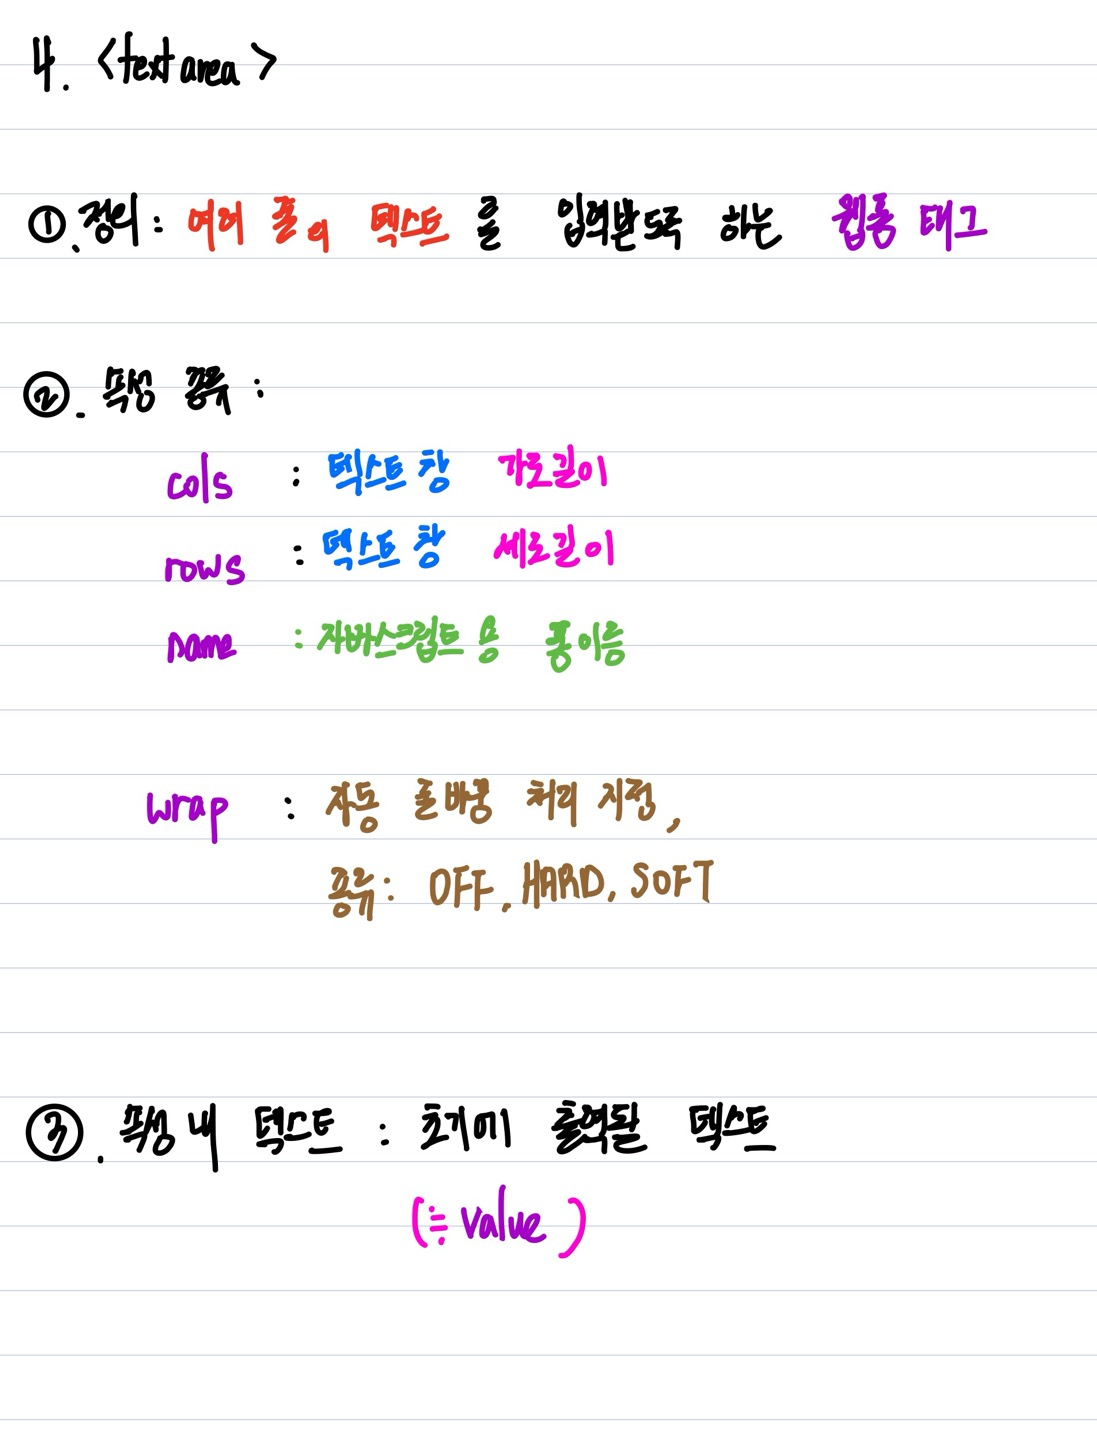 4. <textarea>
①. 정의 : 여러 줄의 텍스트를 입력받도록 하는 웹폼 태그
②. 속성 종류 :
cols : 텍스트 창 가로길이
rows : 텍스트 창 세로길이
name : 자바스크립트 용 폼이름
wrap : 자동 줄바꿈 처리 지정,
종류 : OFF, HARD, SOFT
③. 속성 내 텍스트 : 초기에 출력될 텍스트
(≒ value)